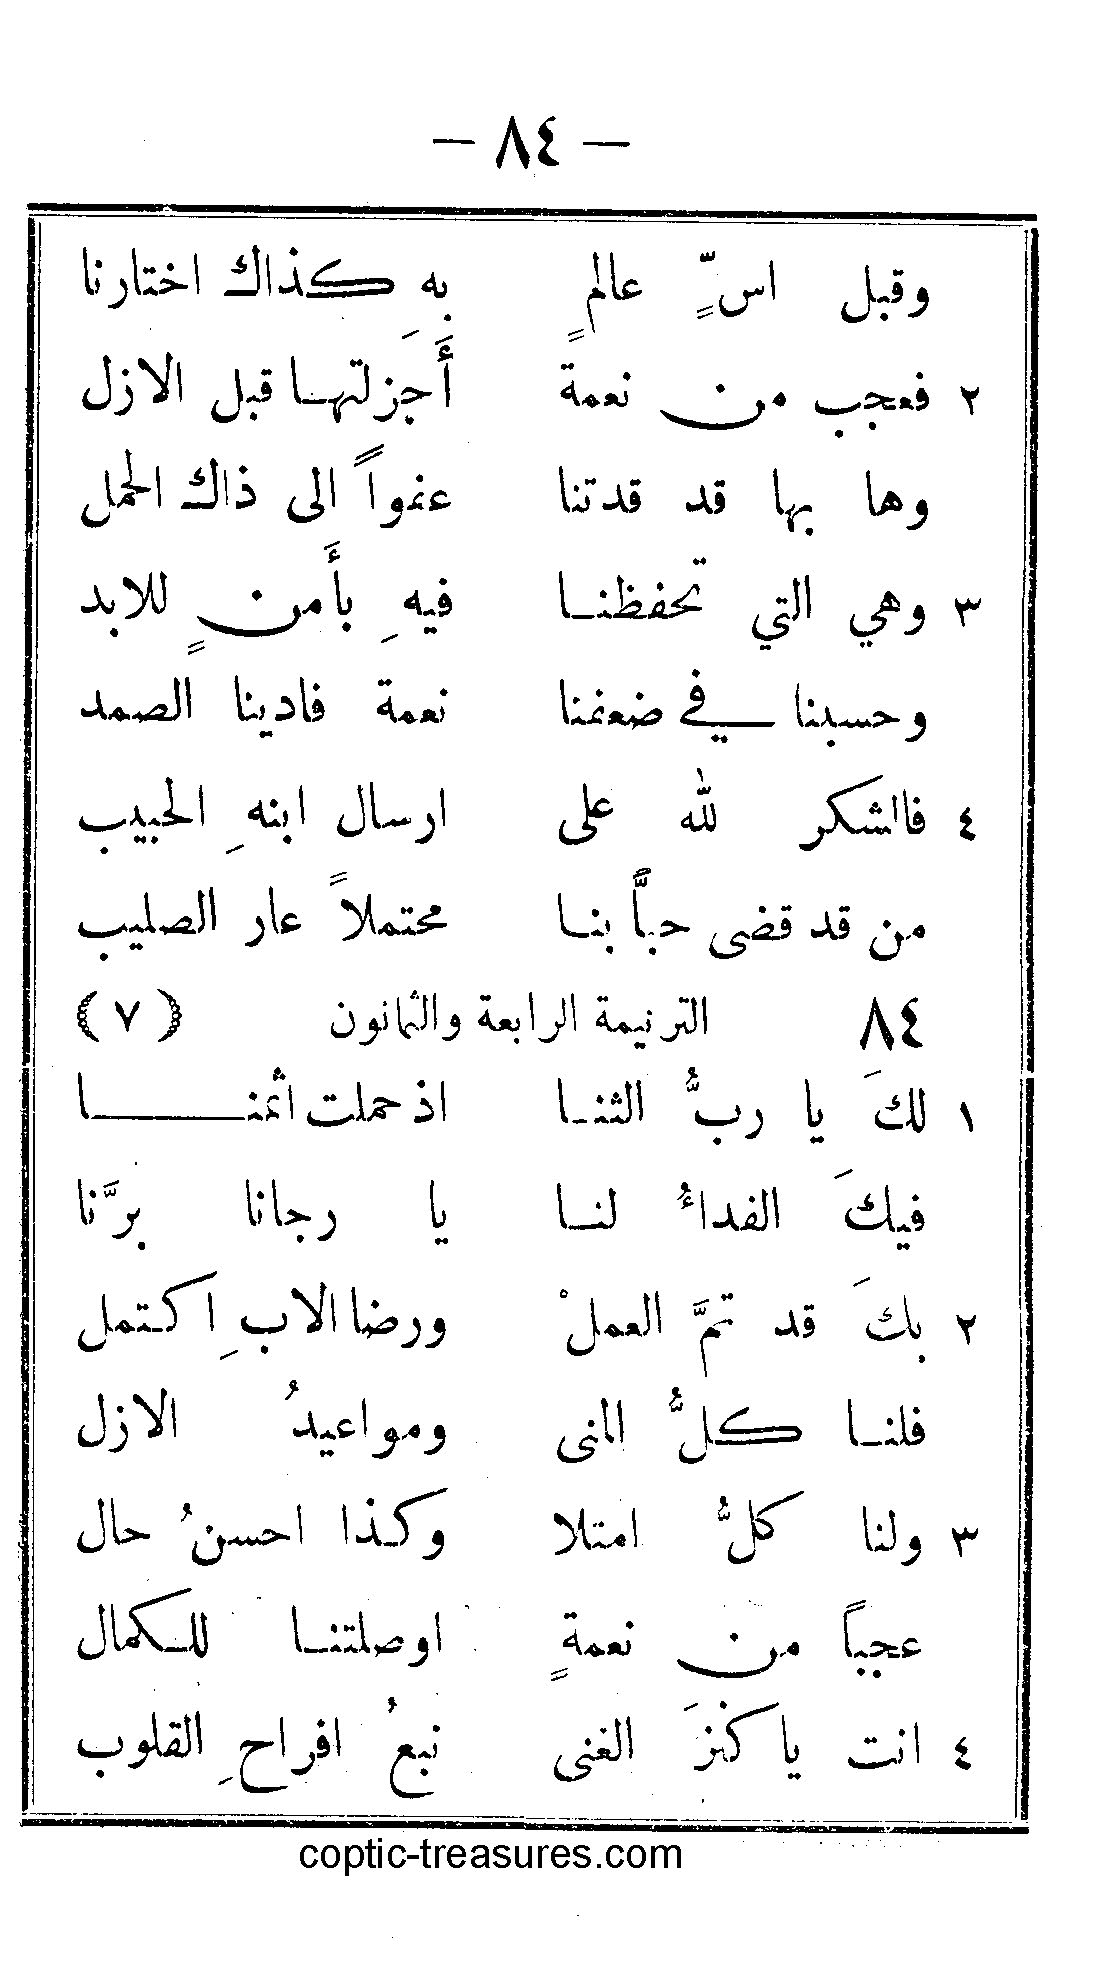 — ٨٤ —
وقبل اسٍّ عالمٍ به كذاك اختارنا
٢ فعجب من نعمة أَجَزلتها قبل الازل
وها بها قد قدتنا عفواً الى ذاك الحمل
٣ وهي التي تحفظنا فيهِ بأَمنٍ للابد
وحسبنا في ضعفنا نعمة فادينا الصمد
٤ فالشكر لله على ارسال ابنهِ الحبيب
من قد قضى حبًّا بنا محتملاً عار الصليب
٨٤ الترنيمة الرابعة والثمانون (٧)
١ لكَ يا ربُّ الثنا اذ حملت اثمنا
فيكَ الفداءُ لنا يا رجانا برَّنا
٢ بكَ قد تمَّ العملْ ورضا الابِ اكتمل
فلنا كلُّ المنى ومواعيدُ الازل
٣ ولنا كلُّ امتلا وكذا احسنُ حال
عجباً من نعمةٍ اوصلتنا للكمال
٤ انت يا كنزَ الغنى نبعُ افراحِ القلوب
coptic-treasures.com